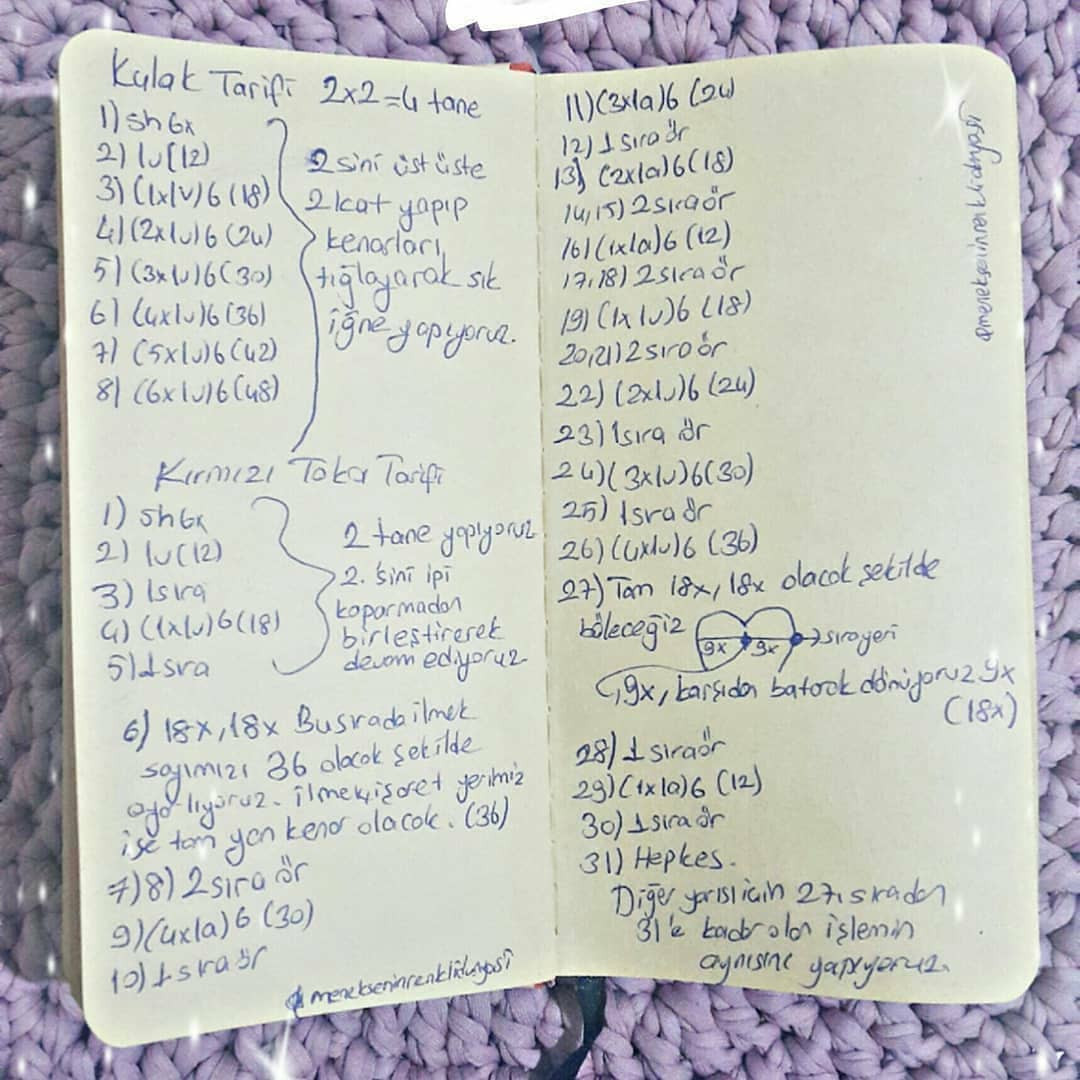 Kulak Tarifi 2x2=4 tane
1) sh 6x
2) 1v(12)
3) (1x1v)6(18)
4) (2x1v)6(24)
5) (3x1v)6(30)
6) (4x1v)6(36)
7) (5x1v)6(42)
8) (6x1v)6(48)
2 sini üst üste
2 kat yapıp
kenarları
tığlayarak sık
iğne yapıyoruz.
Kırmızı Toka Tarifi
1) sh 6x
2) 1v(12)
3) 1sıra
4) (1x1v)6(18)
5) 1sıra
2 tane yapıyoruz
2. sini ipi
koparmadan
birleştirerek
devam ediyoruz
6) 18x, 18x Bu sırada ilmek
sayımızı 36 olacak şekilde
ayarlıyoruz. ilmek işaret yerimiz
ise tam yan kenar olacak. (36)
7) 8) 2 sıra ör
9) (4x1a)6 (30)
10) 1 sıra ör
@menekseninrenklidunyasi
11) (3x1a)6 (24)
12) 1 sıra ör
13) (2x1a)6(18)
14,15) 2 sıra ör
16) (1x1a)6 (12)
17,18) 2 sıra ör
19) (1x1v)6 (18)
20,21) 2 sıra ör
22) (2x1v)6 (24)
23) 1sıra ör
24) (3x1v)6(30)
25) 1sıra ör
26) (4x1v)6 (36)
27) Tam 18x, 18x olacak şekilde
böleceğiz 9x 9x → sıra yeri
9x, karşıdan batarak dönüyoruz 9x
(18x)
28) 1 sıra ör
29) (1x1a)6 (12)
30) 1 sıra ör
31) Hepkes.
Diğer yarısı için 27. sıradan
31'e kadar olan işlemin
aynısını yapıyoruz.
@menekseninrenklidunyasi